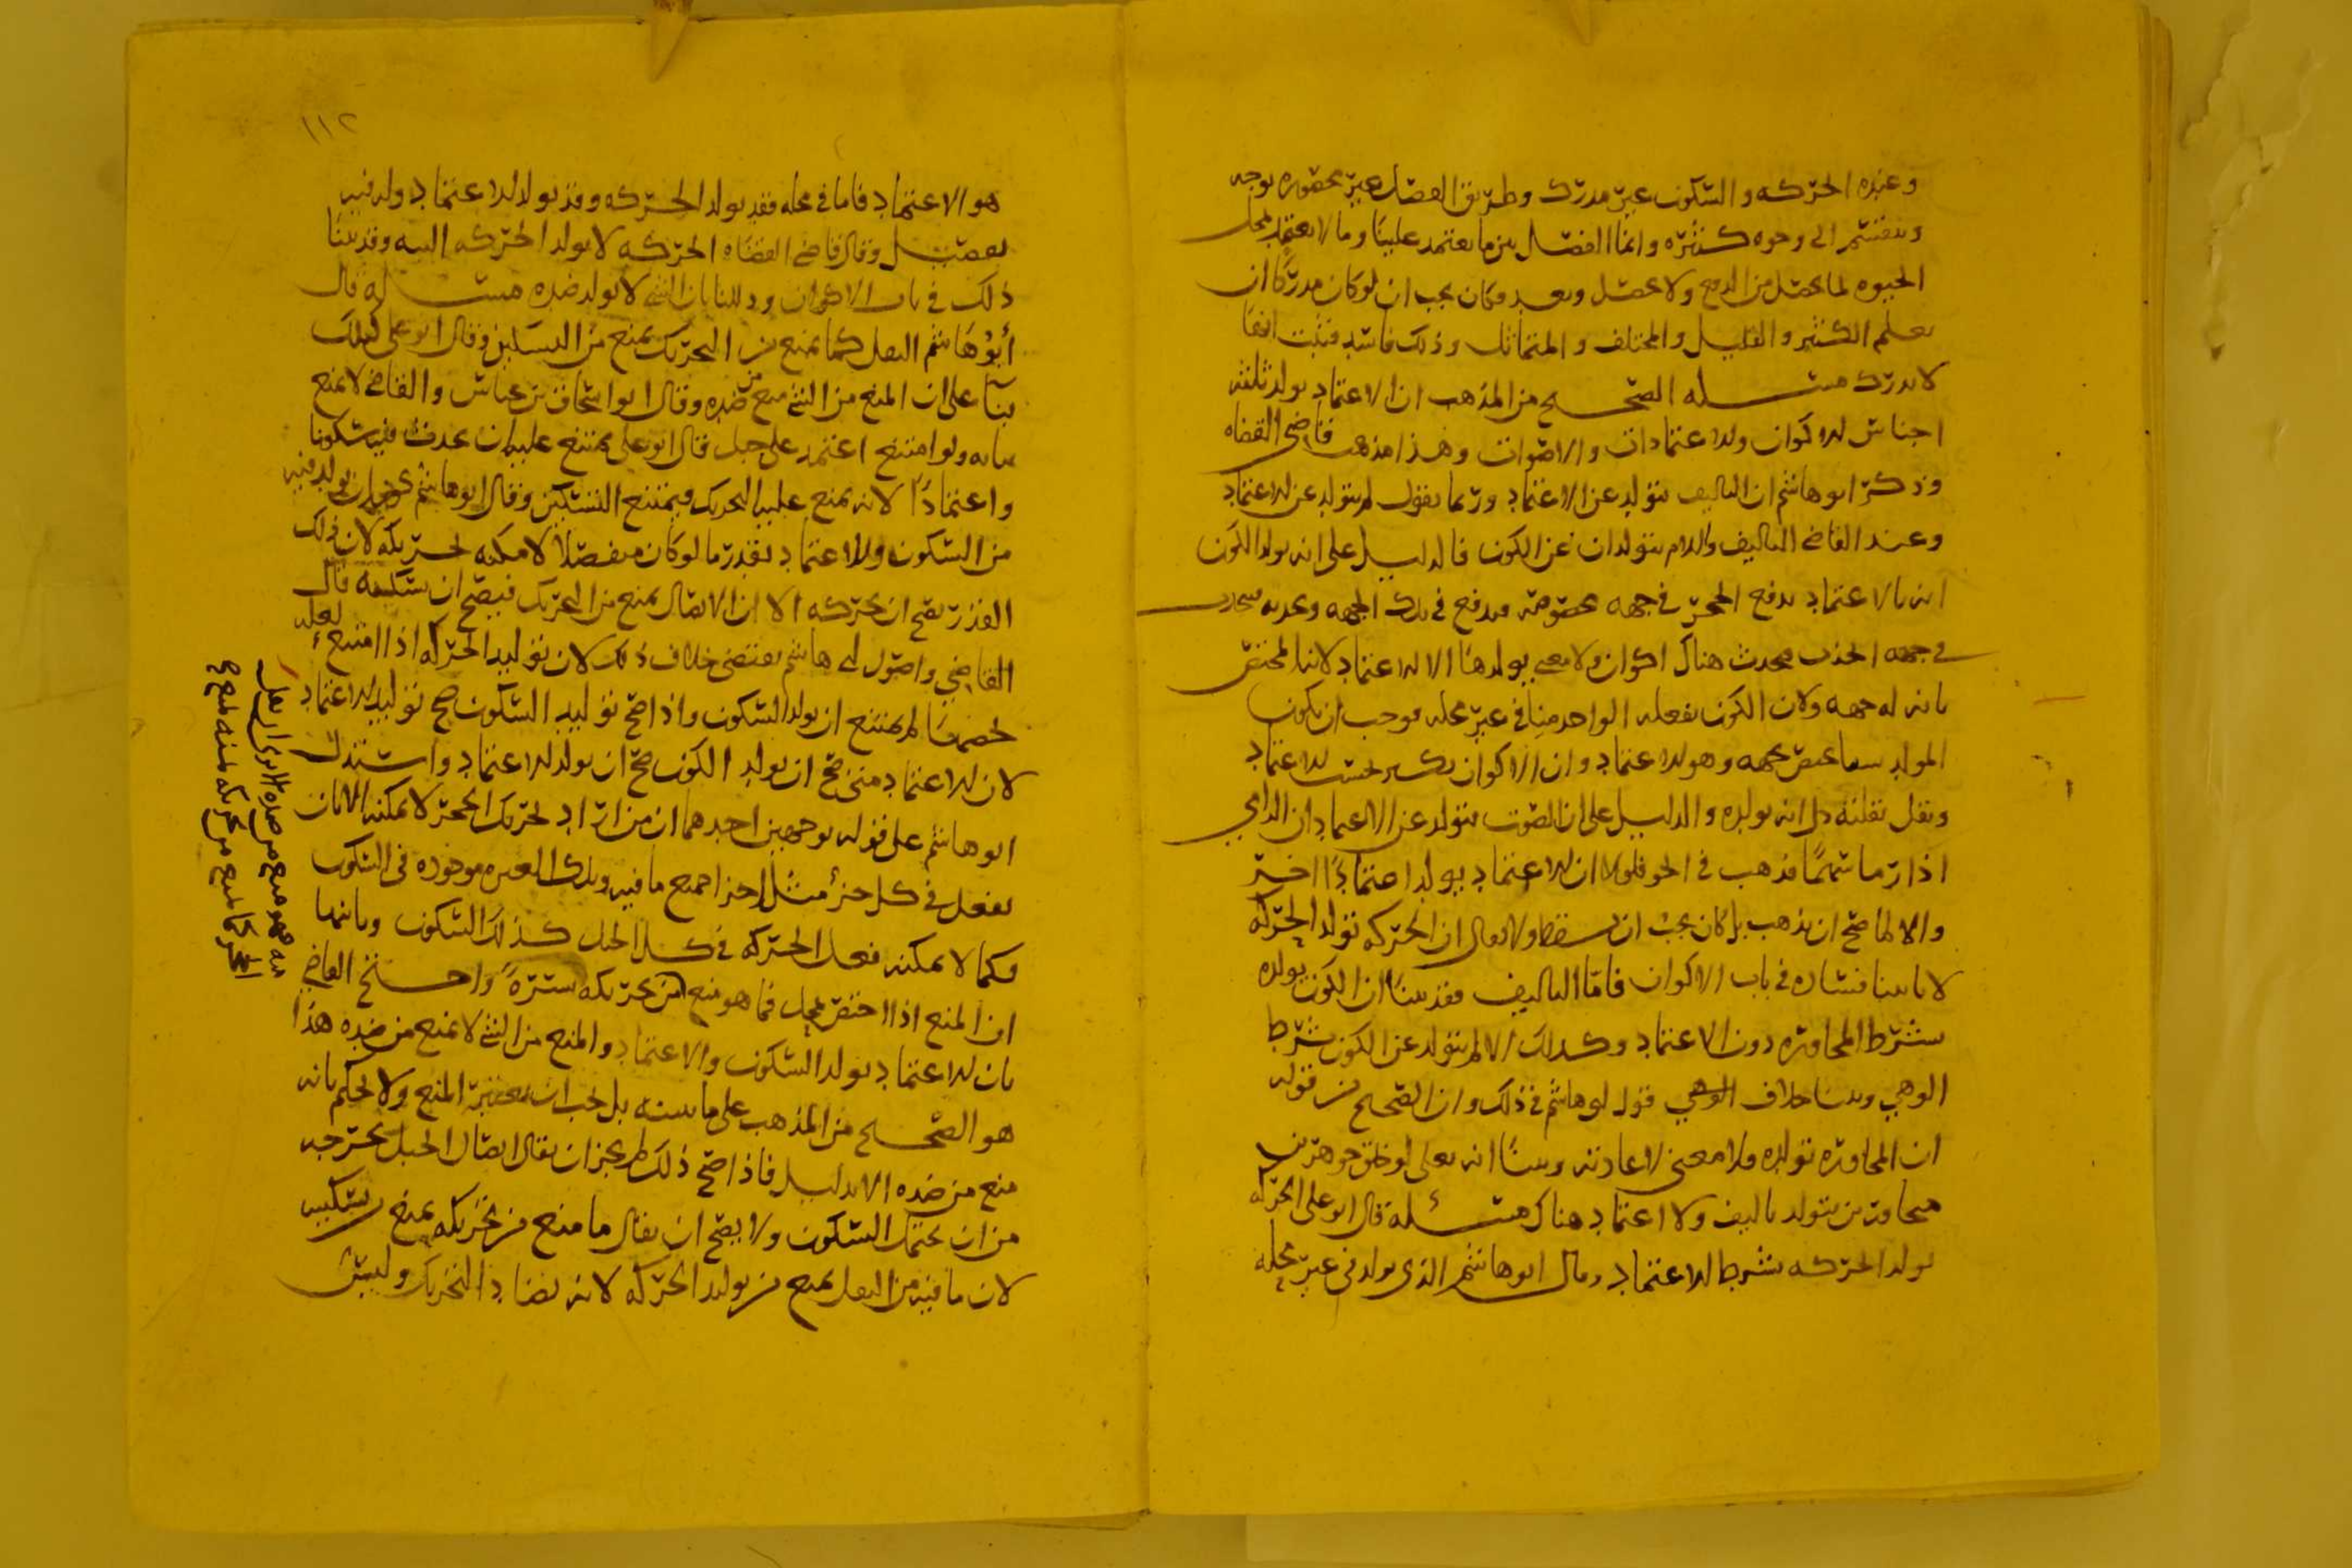 وعنده الحركه والسكون غير مدرك وطريق الفصل غير محصوره بوجه
وينقسم الى وجوه كثيره وانما الفصل بين ما يعتمد علينا وما لا يعتمد لمحل
الحيوه لما يحصل من الدفع ولا يحصل وبعد فكان يجب ان لو كان مدركا ان
يعلم الكثير والقليل والمختلف والمتماثل وذلك فاسد فثبت انها
لا تدرك مسله الصحيح من المذهب ان الاعتماد يولد ثلثه
اجناس الاكوان والاعتمادات والاصوات وهذا مذهب قاضي القضاه
وذكر ابو هاشم ان التاليف يتولد عن الاعتماد وربما يقول لم يتولد عن الاعتماد
وعند القاضي التاليف والالم يتولدان عن الكون فالدليل على انه يولد الكون
انه بالاعتماد يدفع الحجر في جهه مخصوصه فيدفع في تلك الجهه
في جهه الجذب فيحدث هناك اكوان ولا معنى يولدها الا الاعتماد لانه المختص
بانه له جهه ولان الكون يفعله الواحد منا في غير محله فوجب ان يكون
المولد سببا يختص بجهه وهو الاعتماد وان الاكوان يكثر بحسب الاعتماد
ويقل بقلته دل انه يولده والدليل على ان الصوت يتولد عن الاعتماد ان الرامي
اذا رما سهما فذهب في الجو فلولا ان الاعتماد يولد اعتمادا اخر
والا لما صح ان يذهب بل كان يجب ان يسقط ولا يقال ان الحركه تولد الحركه
لانا بينا فساده في باب الاكوان فاما التاليف فقد بينا ان الكون يولده
بشرط المجاوره دون الاعتماد وكذلك الالم يتولد عن الكون بشرط
الوهي وبينا خلاف الوهي قول ابي هاشم في ذلك وان الصحيح من قوله
ان المجاوره تولده ولا معنى لاعادته وبينا انه تعلى لو خلق جوهرين
متجاورين يتولد تاليف ولا اعتماد هناك مسئله قال ابو علي الحركه
تولد الحركه بشرط الاعتماد وقال ابو هاشم الذي يولد في غير محله
١١٢
هو الاعتماد فاما في محله فقد يولد الحركه وقد يولد الاعتماد وله فيه
تفصيل وقال قاضي القضاه الحركه لا تولد الحركه البته وقد بينا
ذلك في باب الاكوان ودللنا بان الشي لا يولد ضده مسله قال
أبو هاشم الثقل كما يمنع من التحريك يمنع من التسكين وقال ابو علي كذلك
بنا على ان المنع من الشي منع من ضده وقال ابو اسحاق بن عياش والقاضي لا يمنع
بيانه ولو امتنع اعتمد على جبل قال ابو علي يمتنع عليه ان يحدث فيه سكونا
واعتمادا لانه يمنع عليه التحريك فيمتنع التسكين وقال ابو هاشم يجوز ان يولد فيه
من السكون والاعتماد بقدر ما لو كان منفصلا لامكنه تحريكه لان ذلك
القدر يصح ان يحركه الا ان الاتصال يمنع من التحريك فيصح ان يسكنه قال
القاضي واصول ابي هاشم يقتضي خلاف ذلك لان توليد الحركه اذا امتنع لعله
تخصها لم يمتنع ان يولد السكون واذا صح توليد السكون صح توليد الاعتماد
لان الاعتماد متى صح ان يولد الكون صح ان يولد الاعتماد واستدل
ابو هاشم على قوله بوجهين احدهما ان من اراد تحريك الحجر لا يمكنه الا بان
يفعل في كل جزء مثل اجزا جميع ما فيه وتلك العبره موجوده في السكون
فكما لا يمكنه فعل الحركه في كل الجبل كذلك السكون وثانيها
ان المنع اذا اختص بمحل فما هو منع من تحريكه واحتج القاضي
بان الاعتماد يولد السكون والاعتماد والمنع من الشي لا يمنع من ضده هذا
هو الصحيح من المذهب على ما نبينه بل يجب ان يعتبر المنع ولا نحكم بانه
منع من ضده الا بدليل فاذا صح ذلك لم يجز ان يقال اتصال الجبل يخرجه
من ان يحتمل السكون ولا يصح ان يقال ما منع من تحريكه يمنع تسكينه
لان ما فيه من الثقل يمنع من توليد الحركه لانه يضاد التحريك وليس